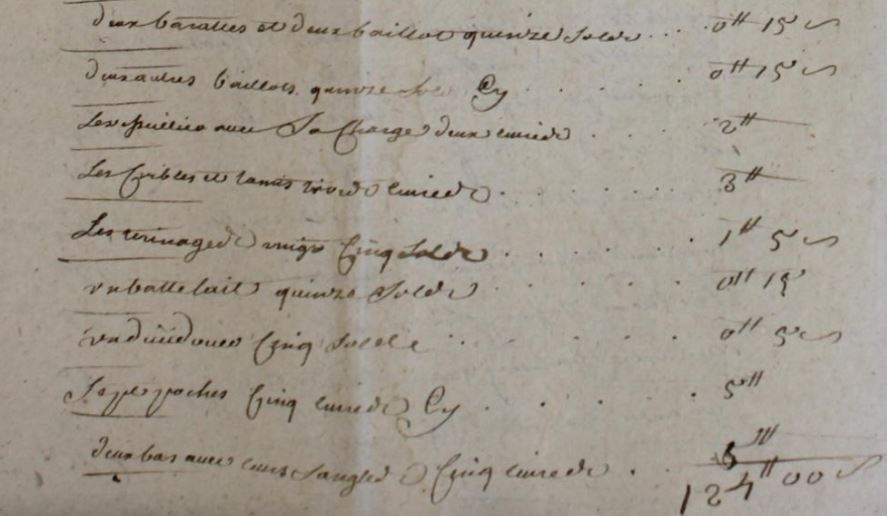 deux baralles et deux baillot quinze solds ... 0" 15 s
deux autres baillots quinze sols Cy . . . 0" 15 s
Les avec Sa Charge deux livreds . . . 2"
Les Cribles et tamis troids livreds . . . 3"
Les vingt Cinq Solds . . . 1" 5 s
un battelait quinze Solds . . . 0" 15
un Cinq Solds . . . 0" 5 s
Sept poches Cinq livreds Cy . . . 5"
deux bas avec leurs sangled Cinq livreds . 5"
124" 00 s